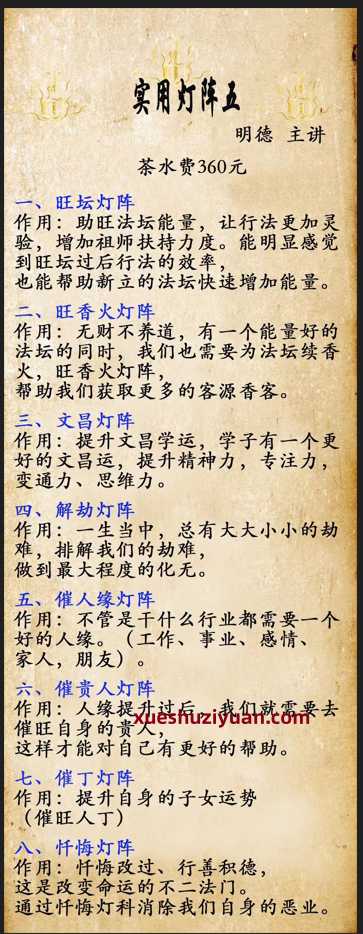 实用灯阵五
明德 主讲
茶水费360元
一、旺坛灯阵
作用：助旺法坛能量，让行法更加灵
验，增加祖师扶持力度。能明显感觉
到旺坛过后行法的效率，
也能帮助新立的法坛快速增加能量。
二、旺香火灯阵
作用：无财不养道，有一个能量好的
法坛的同时，我们也需要为法坛续香
火，旺香火灯阵，
帮助我们获取更多的客源香客。
三、文昌灯阵
作用：提升文昌学运，学子有一个更
好的文昌运，提升精神力，专注力，
变通力、思维力。
四、解劫灯阵
作用：一生当中，总有大大小小的劫
难，排解我们的劫难，
做到最大程度的化无。
五、催人缘灯阵
作用：不管是干什么行业都需要一个
好的人缘。（工作、事业、感情、
家人，朋友）。
六、催贵人灯阵
作用：人缘提升过后，我们就需要去
催旺自身的贵人，
xueshuziyuan.com
这样才能对自己有更好的帮助。
七、催丁灯阵
作用：提升自身的子女运势
（催旺人丁）
八、忏悔灯阵
作用：忏悔改过、行善积德，
这是改变命运的不二法门。
通过忏悔灯科消除我们自身的恶业。